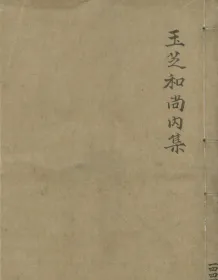 玉芝和尚内集